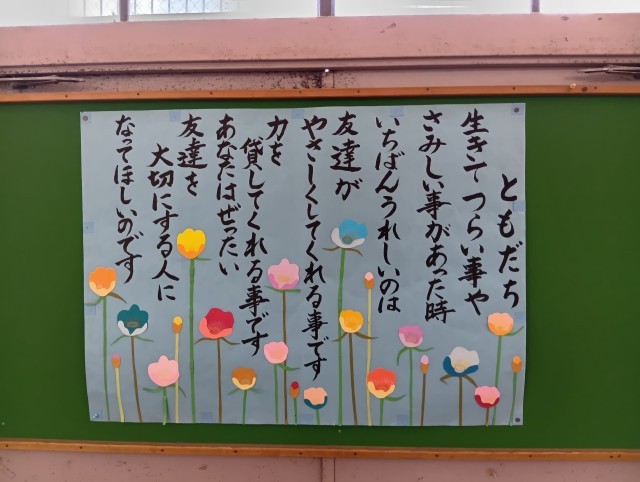 ともだち
生きてつらい事や
さみしい事があった時
いちばんうれしいのは
友達が
やさしくしてくれる事です
力を
貸してくれる事です
あなたはぜったい
友達を
大切にする人に
なってほしいのです